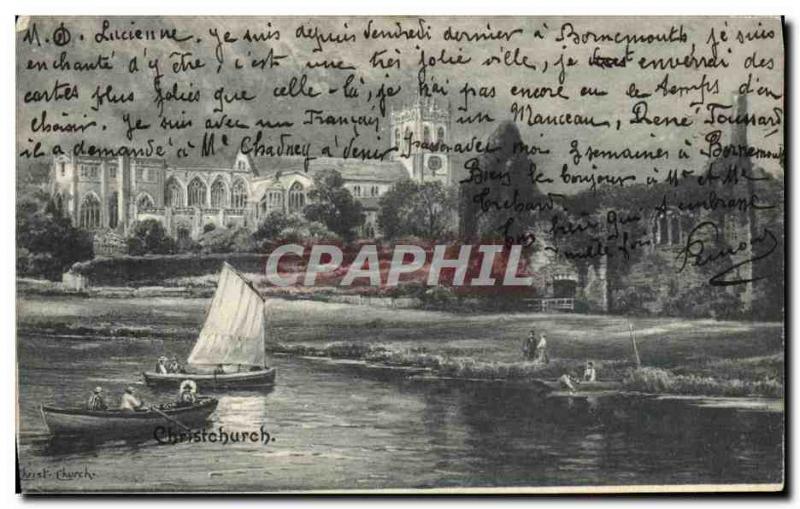 M. D. Lucienne. Je suis depuis Vendredi dernier à Bornemouth, je suis
enchanté d'y être, c'est une très jolie ville, je vous enverrai des
cartes plus jolies que celle-là, je n'ai pas encore eu le temps d'en
choisir. Je suis avec un Français, un Manceau, René Toussard
il a demandé à Mr Chadney à venir travailler avec moi 3 semaines à Bornemouth
Bien le bonjour à Mr et Mme
Trehard.
ton frère qui t'embrasse
mille fois
CPAPHIL
Christchurch.
Christ-Church.